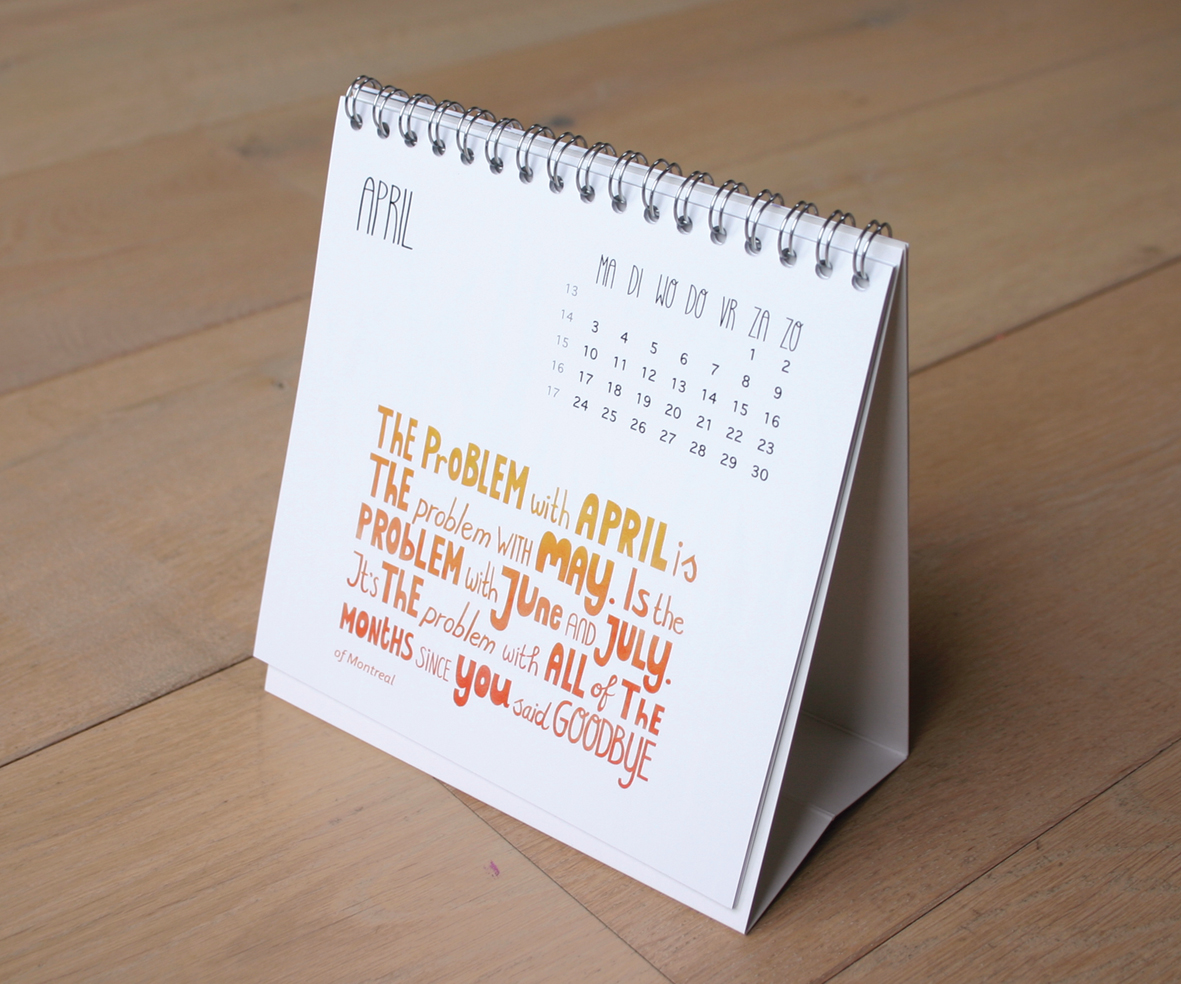 APRIL
MA DI WO DO VR ZA ZO
13 1 2
14 3 4 5 6 7 8 9
15 10 11 12 13 14 15 16
16 17 18 19 20 21 22 23
17 24 25 26 27 28 29 30
ThE ProBLEM with APRIL is
ThE problem WITH MAY. Is the
PRObLEM with JUne AND JULY.
It's ThE problem with ALL of ThE
MONtHS SiNCE you said GOODByE
of Montreal